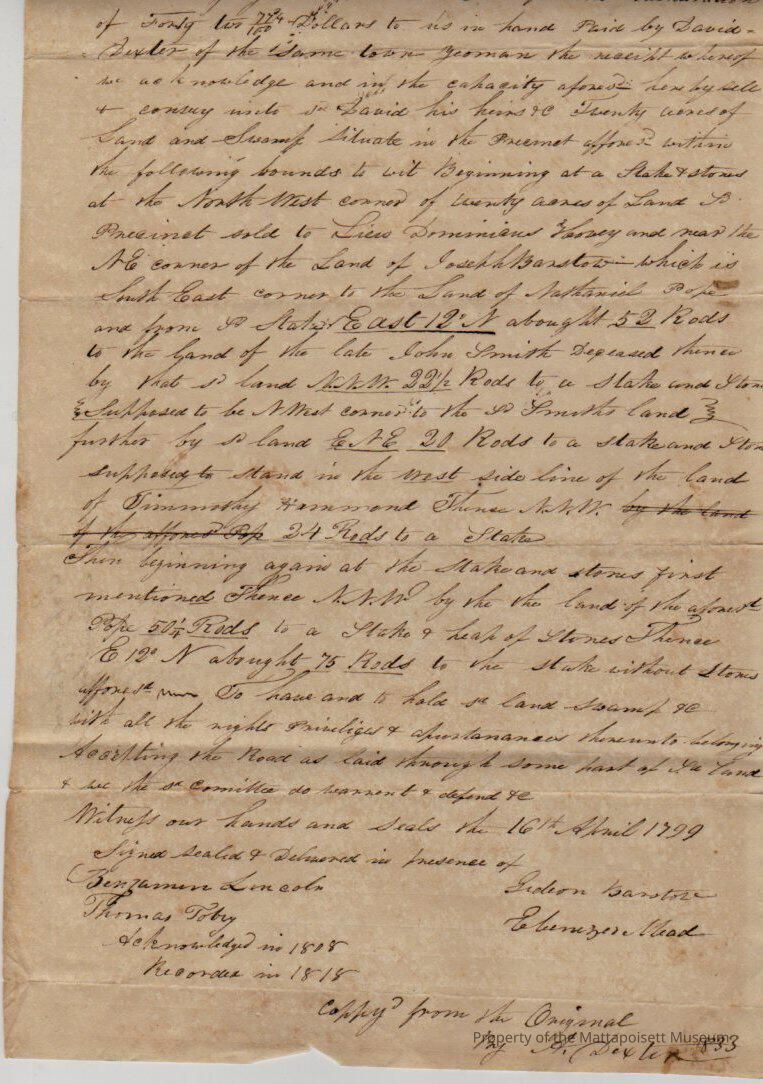 of Forty two 77/100 Dollars to us in hand Paid by David
Dexter of the Same town Yeoman the receipt whereof
we acknowledge and in the capacity afores.d hereby sell
& convey unto s.d David his heirs &c Twenty acres of
Land and Swamp Situate in the Precinct affores.d within
the following bounds to wit Beginning at a Stake & stones
at the North West corner of twenty acres of Land S.d
Precinct sold to Lieu Dominicus Hovey and near the
NE corner of the Land of Joseph Barstow which is
South East corner to the Land of Nathaniel Pope
and from S.d Stake East 12° N abought 52 Rods
to the land of the late John Smith Deceased thence
by that s.d land N.N.W. 22 1/2 Rods to a stake and Stone
Supposed to be N West corner to the S.d Smiths land
further by s.d land ENE 20 Rods to a stake and Ston
supposed to stand in the west side line of the land
of Timmothy Hammond Thence N.N.W. by the land
of the affores.d Pope 24 Rods to a Stake
Then beginning again at the Stake and stones first
mentioned Thence N.N.W. by the the land of the afores.d
Pope 50 1/4 Rods to a Stake & heap of Stones Thence
E 12° N abought 75 Rods to the stake without Stones
affores.d To have and to hold s.d land Swamp &c
with all the rights Priviliges & apurtanances thereunto belonging
Accepting the Road as laid through some part of S.d Land
& we the s.d Comittee do warrent & defend &c
Witness our hands and Seals the 16th April 1799
Signed Sealed & Delivered in presence of
Benjamen Lincoln Gideon Barstow
Thomas Tobey Ebenezer Mead
Acknowledged in 1808
Recorded in 1818
Coppy.d from the Original
by A. Dexter 1833
Property of the Mattapoisett Museum